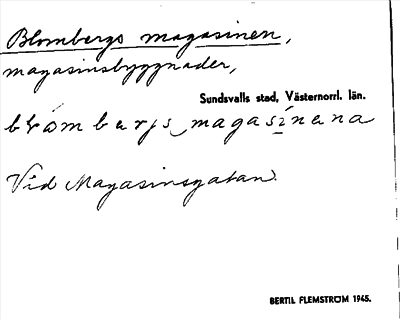 Blombergs magasinen,
magasinsbyggnader,
Sundsvalls stad, Västernorrl. län.
blombärjs magasinena
Vid Magasinsgatan.
BERTIL FLEMSTRÖM 1945.